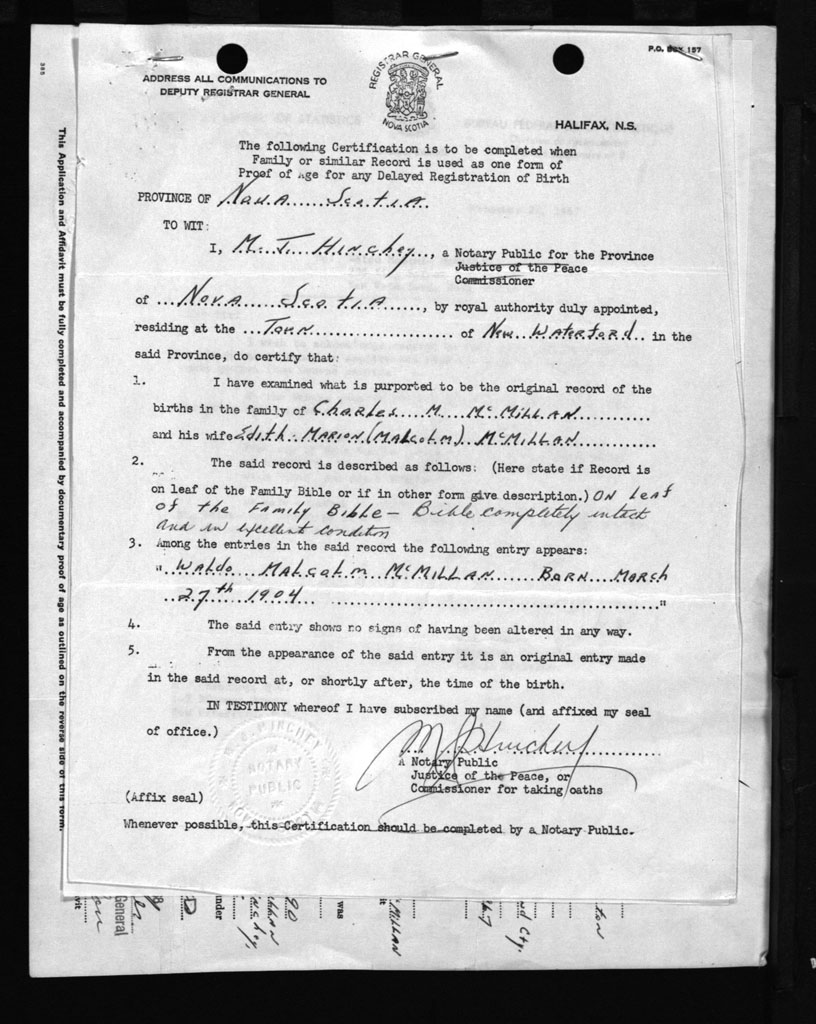 P.O. BOX 157
ADDRESS ALL COMMUNICATIONS TO
DEPUTY REGISTRAR GENERAL
REGISTRAR GENERAL
NOVA SCOTIA
HALIFAX, N.S.
The following Certification is to be completed when
Family or similar Record is used as one form of
Proof of Age for any Delayed Registration of Birth
PROVINCE OF Nova Scotia
TO WIT:
I, M. J. Hinchey, a Notary Public for the Province
Justice of the Peace
Commissioner
of ...Nova Scotia......, by royal authority duly appointed,
residing at the ...Town.................... of New Waterford.. in the
said Province, do certify that:
1. I have examined what is purported to be the original record of the
births in the family of Charles M. McMillan............
and his wife Edith Marion (Malcolm) McMillan............
2. The said record is described as follows: (Here state if Record is
on leaf of the Family Bible or if in other form give description.) On Leaf
of the Family Bible - Bible completely intact
and in excellent condition
3. Among the entries in the said record the following entry appears:
" Waldo Malcolm McMillan Born March
27th 1904 .................................................."
4. The said entry shows no signs of having been altered in any way.
5. From the appearance of the said entry it is an original entry made
in the said record at, or shortly after, the time of the birth.
IN TESTIMONY whereof I have subscribed my name (and affixed my seal
of office.)
M J Hinchey
A Notary Public
Justice of the Peace, or
Commissioner for taking oaths
NOTARY
PUBLIC
(Affix seal)
Whenever possible, this Certification should be completed by a Notary Public.
This Application and Affidavit must be fully completed and accompanied by documentary proof of age as outlined on the reverse side of this form.
General
under
was